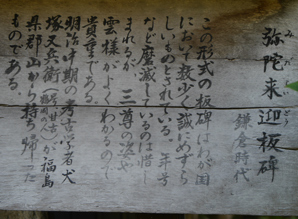 弥陀来迎板碑
鎌倉時代
この形式の板碑はわが国
において数少く誠にめずら
しいものとされている。年号
など磨滅しているのは惜し
まれるが、三尊の姿や
雲様がよくわかるので
貴重である。
明治中期の考古学者犬
塚又兵衛が福島
県郡山から持ち帰った
ものである。